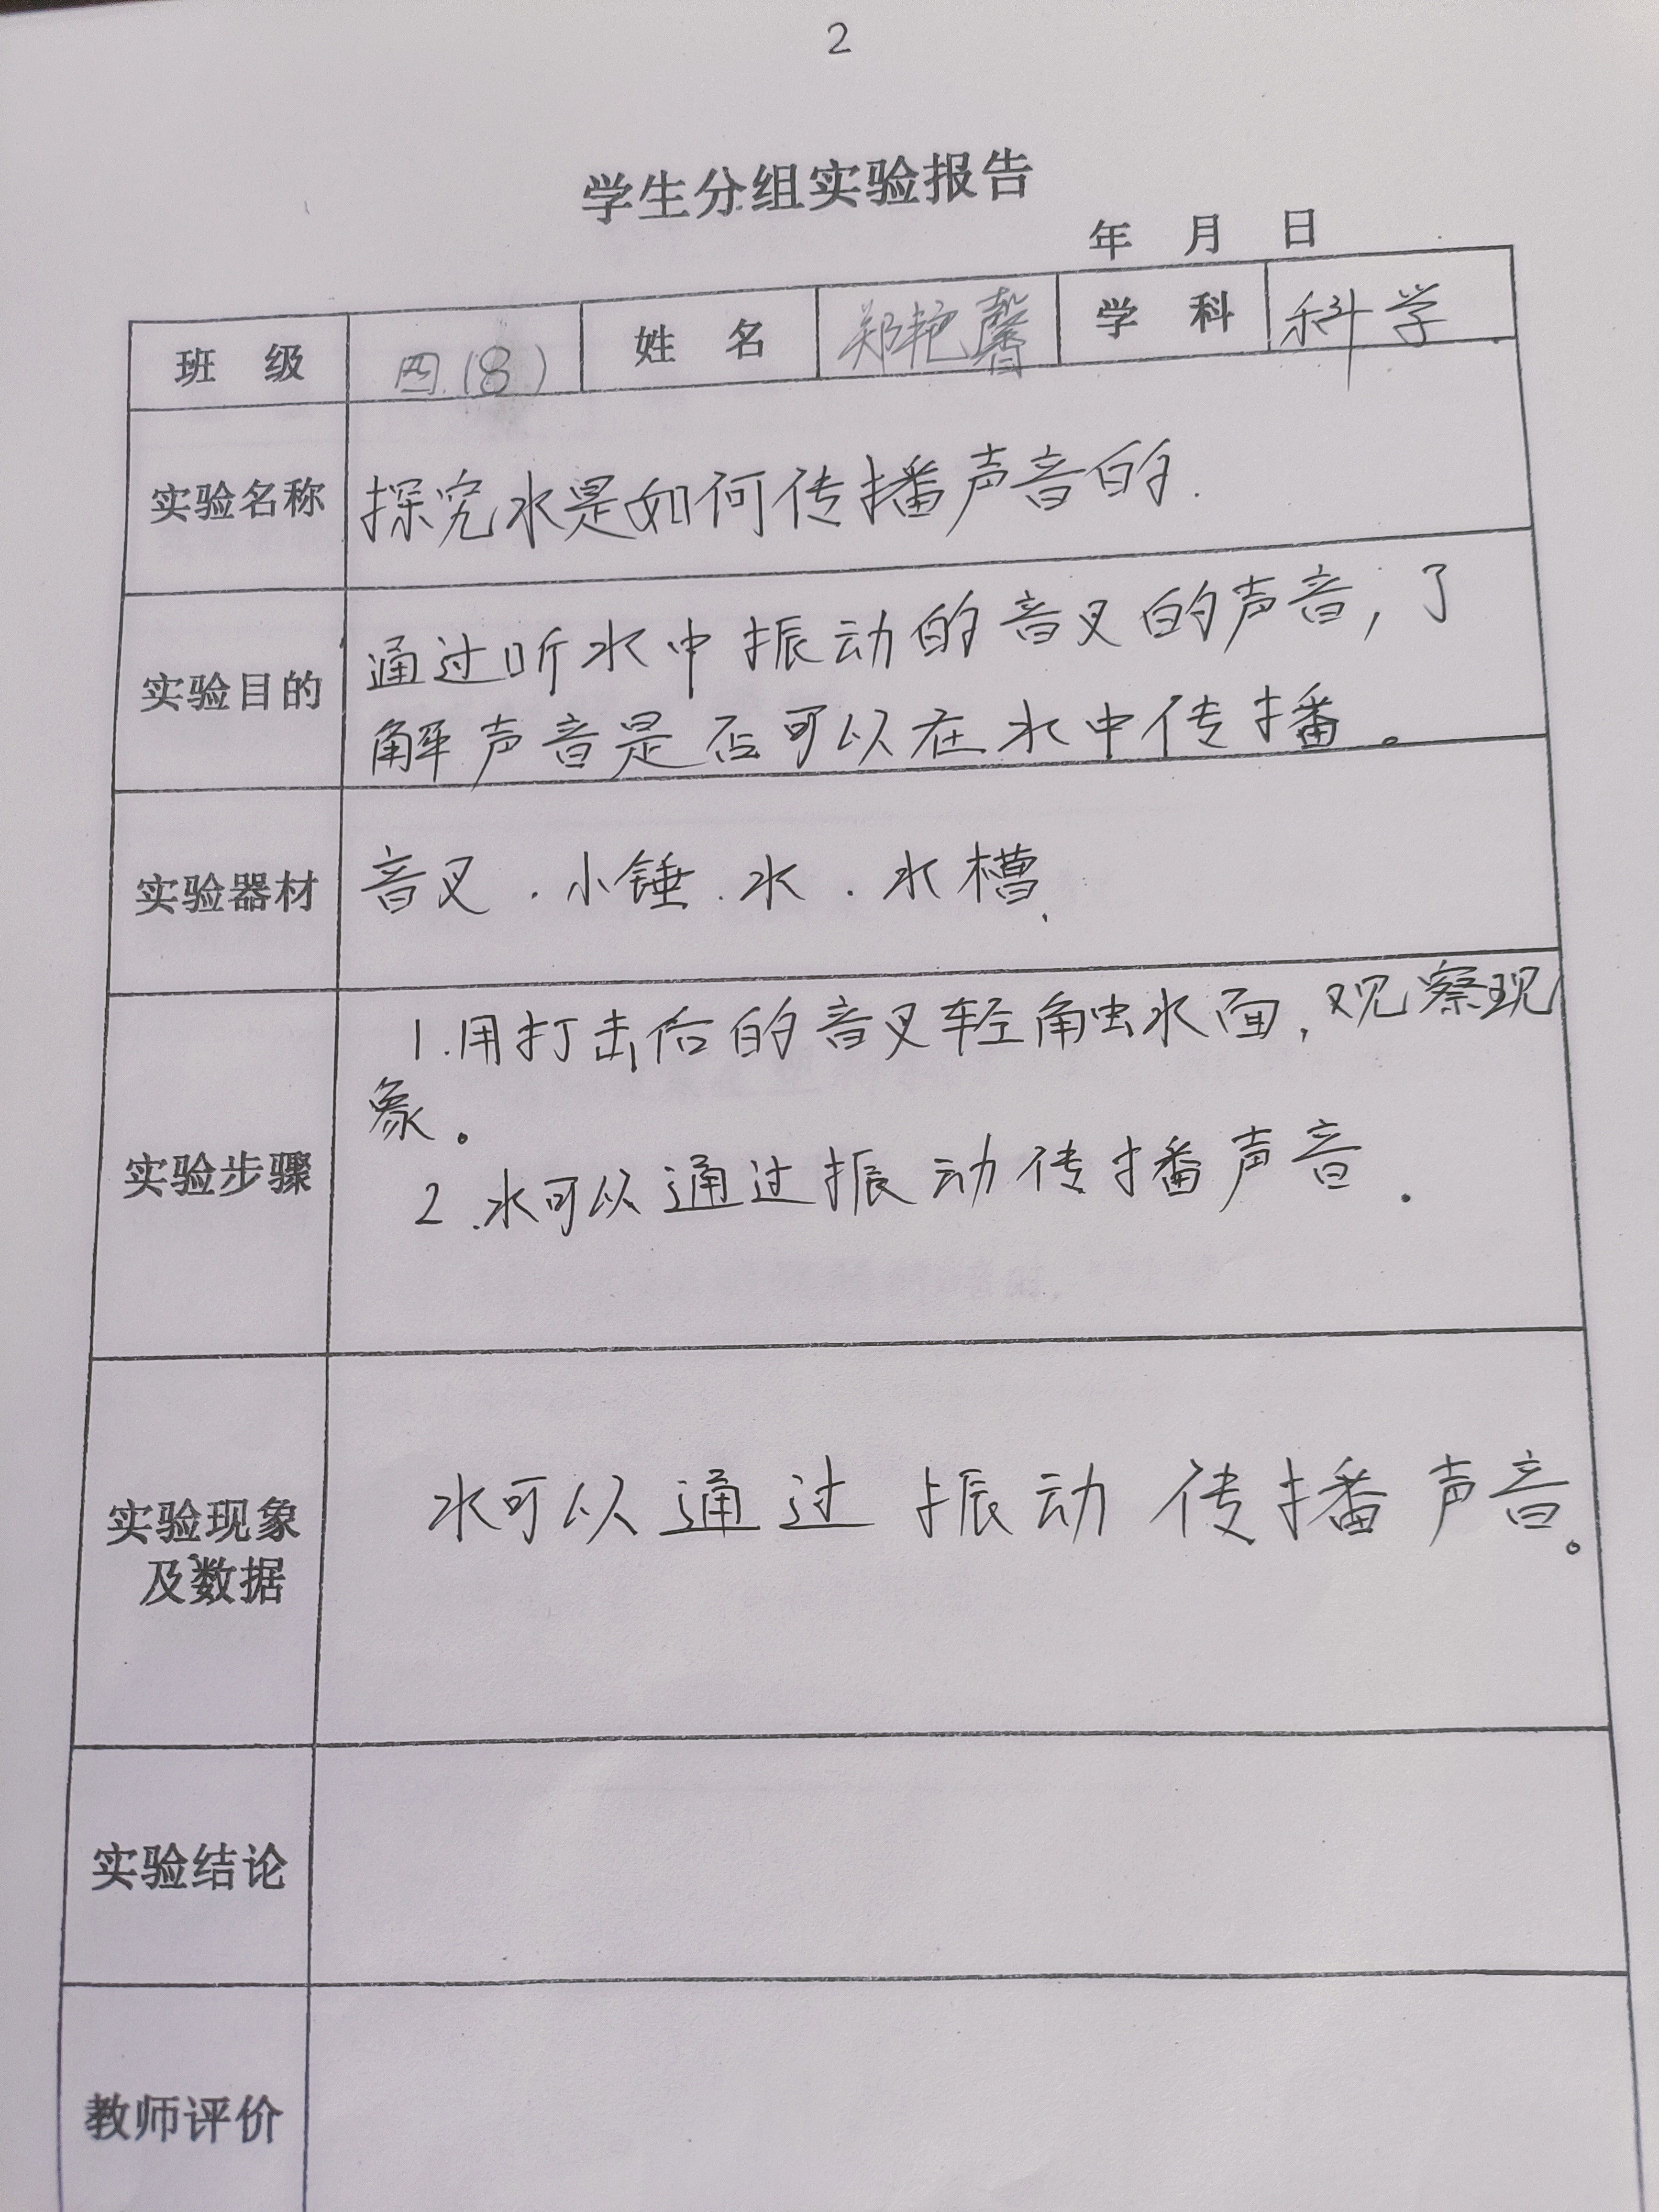 2
学生分组实验报告
年 月 日
班 级 四.(8) 姓 名 郑艳馨 学 科 科学
实验名称 探究水是如何传播声音的.
实验目的 通过听水中振动的音叉的声音,了
解声音是否可以在水中传播。
实验器材 音叉.小锤.水.水槽.
1.用打击后的音叉轻触水面,观察现
象。
实验步骤 2.水可以通过振动传播声音.
实验现象
及数据 水可以通过振动传播声音。
实验结论
教师评价